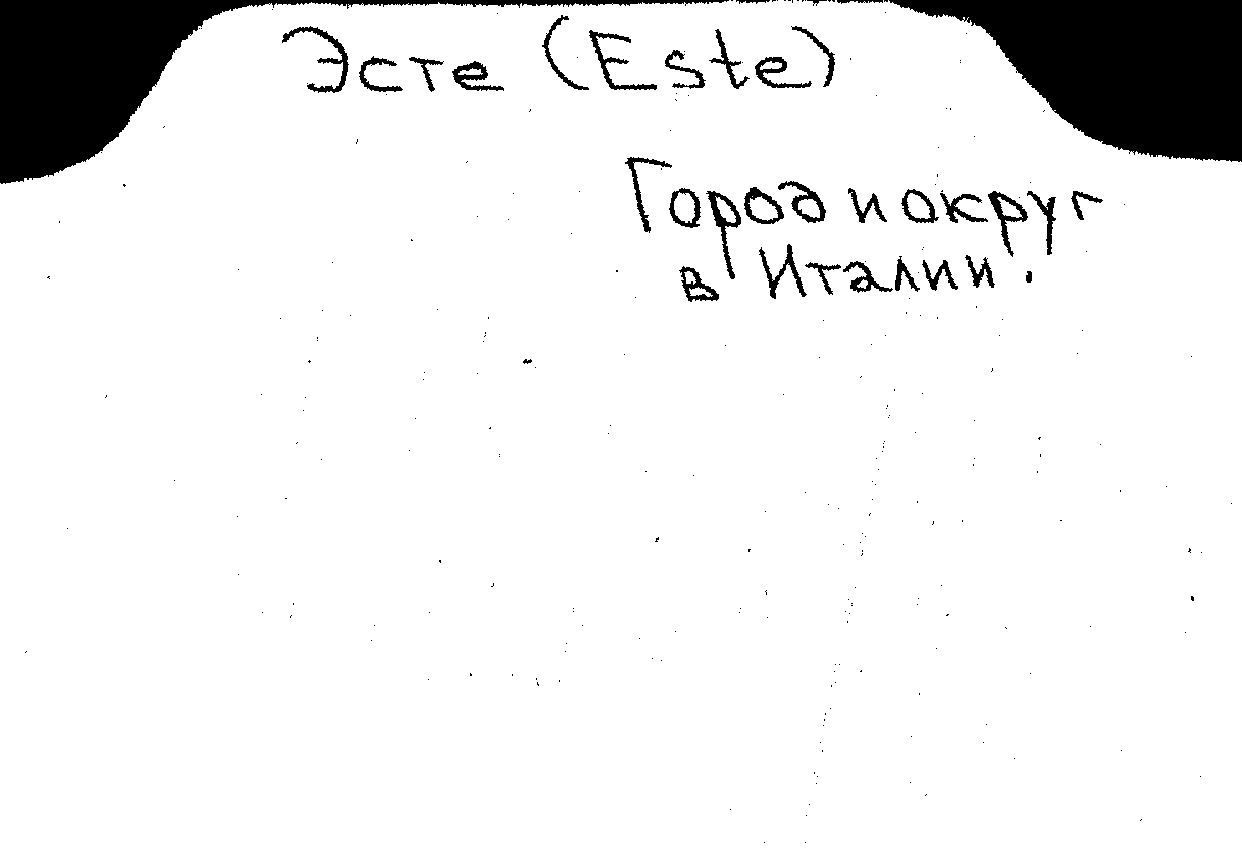 Эсте (Este)
Город и округ
в Италии.